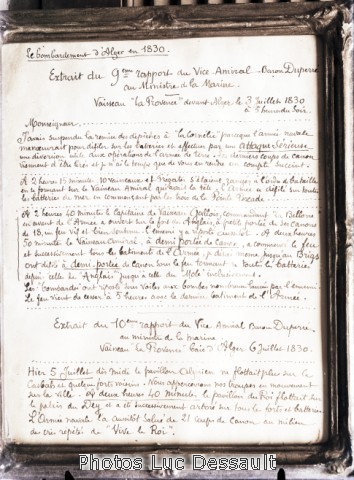 Le bombardement d'Alger en 1830.
Extrait du 9ème rapport du Vice Amiral Baron Duperré
au Ministre de la Marine.
Vaisseau "la Provence" devant Alger le 3 Juillet 1830
à 5 heures du soir
Monseigneur,
J'avais suspendu la remise des dépêches à "la Cornélie" parceque l'armée navale
manœuvrait pour défiler sur les batteries et effectuer par une attaque sérieuse
une diversion utile aux opérations de l'armée de terre. Les derniers coups de canon
viennent d'être tirés et je n'ai le temps que de vous en rendre un compte succinct.
A 2 heures 15 minutes 10 vaisseaux et frégates
et se formant sur le Vaisseau Amiral qui tenait la tête, l'Armée a défilé sur toutes
les batteries de mer en commençant par les trois de la Pointe Pescade
A 2 heures 40 minutes le Capitaine de Vaisseau Gallois, commandant la Bellone
en avant de l'Armée a ouvert sur le fort des Anglais à petite portée de ses Canons
de 18, un feu vif et bien soutenu. L'ennemi y a riposté aussitôt. A deux heures
50 minutes le Vaisseau amiral, à demi portée de canon, a commencé le feu
et successivement tous les bâtiments de l'Armée, y même jusqu'au Brigs
ont défilé à demi-portée de canon sous le feu tonnant de toutes les batteries,
depuis celle des Anglais jusqu'à celle du Môle inclusivement.
Les "bombardes" ont riposté sous voiles aux bombes nombreuses lancées par l'ennemi.
Le feu vient de cesser à 5 heures avec le dernier bâtiment de l'Armée.
Extrait du 10ème rapport du Vice Amiral Baron Duperré,
au ministre de la marine.
Vaisseau la Provence baie d'Alger 6 Juillet 1830.
Hier 5 Juillet dès midi le pavillon Algérien ne flottait plus sur la
Casbah et quelques forts voisins. Nous apercevions nos troupes en mouvement
sur la ville. A deux heures 40 minutes, le pavillon du Roi flottait sur
le palais du Dey et a été successivement arboré sur tous les forts et batteries
L'Armée navale l'a aussitôt salué de 21 coups de canon au milieu
des cris répétés de "Vive le Roi".
Photos Luc Dessault